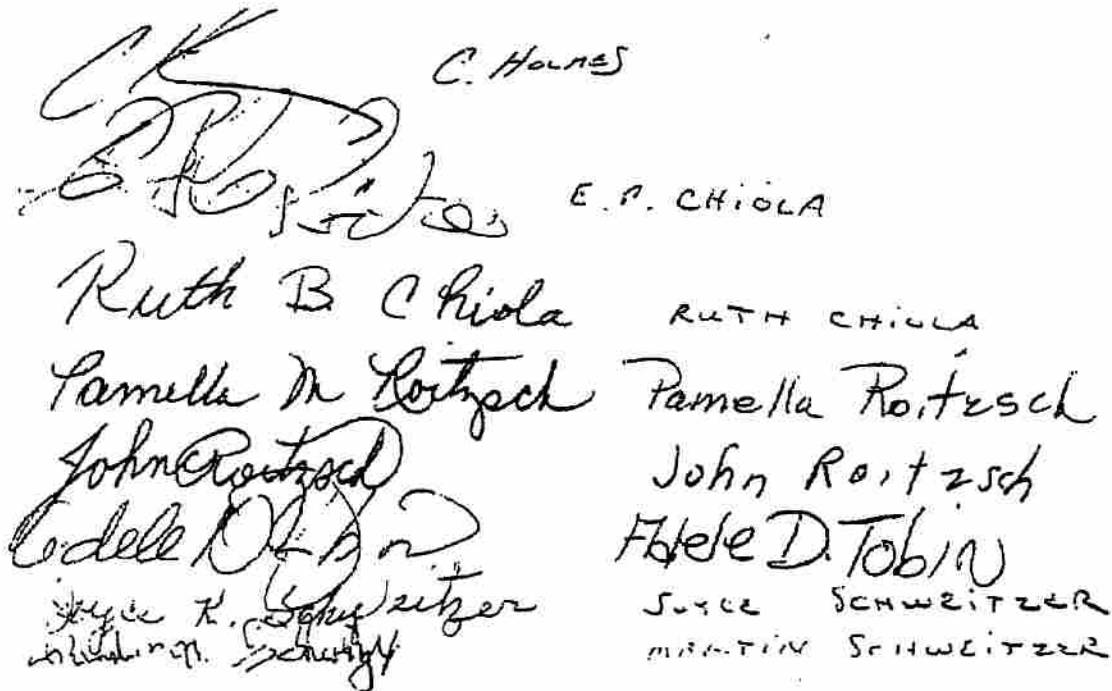 C. HOLMES
E. P. CHIOLA
Ruth B. Chiola RUTH CHIOLA
Pamella M Roitzsch Pamella Roitzsch
John Roitzsch John Roitzsch
Adele D Tobin Adele D. Tobin
Joyce K. Schweitzer JOYCE SCHWEITZER
MARTIN SCHWEITZER